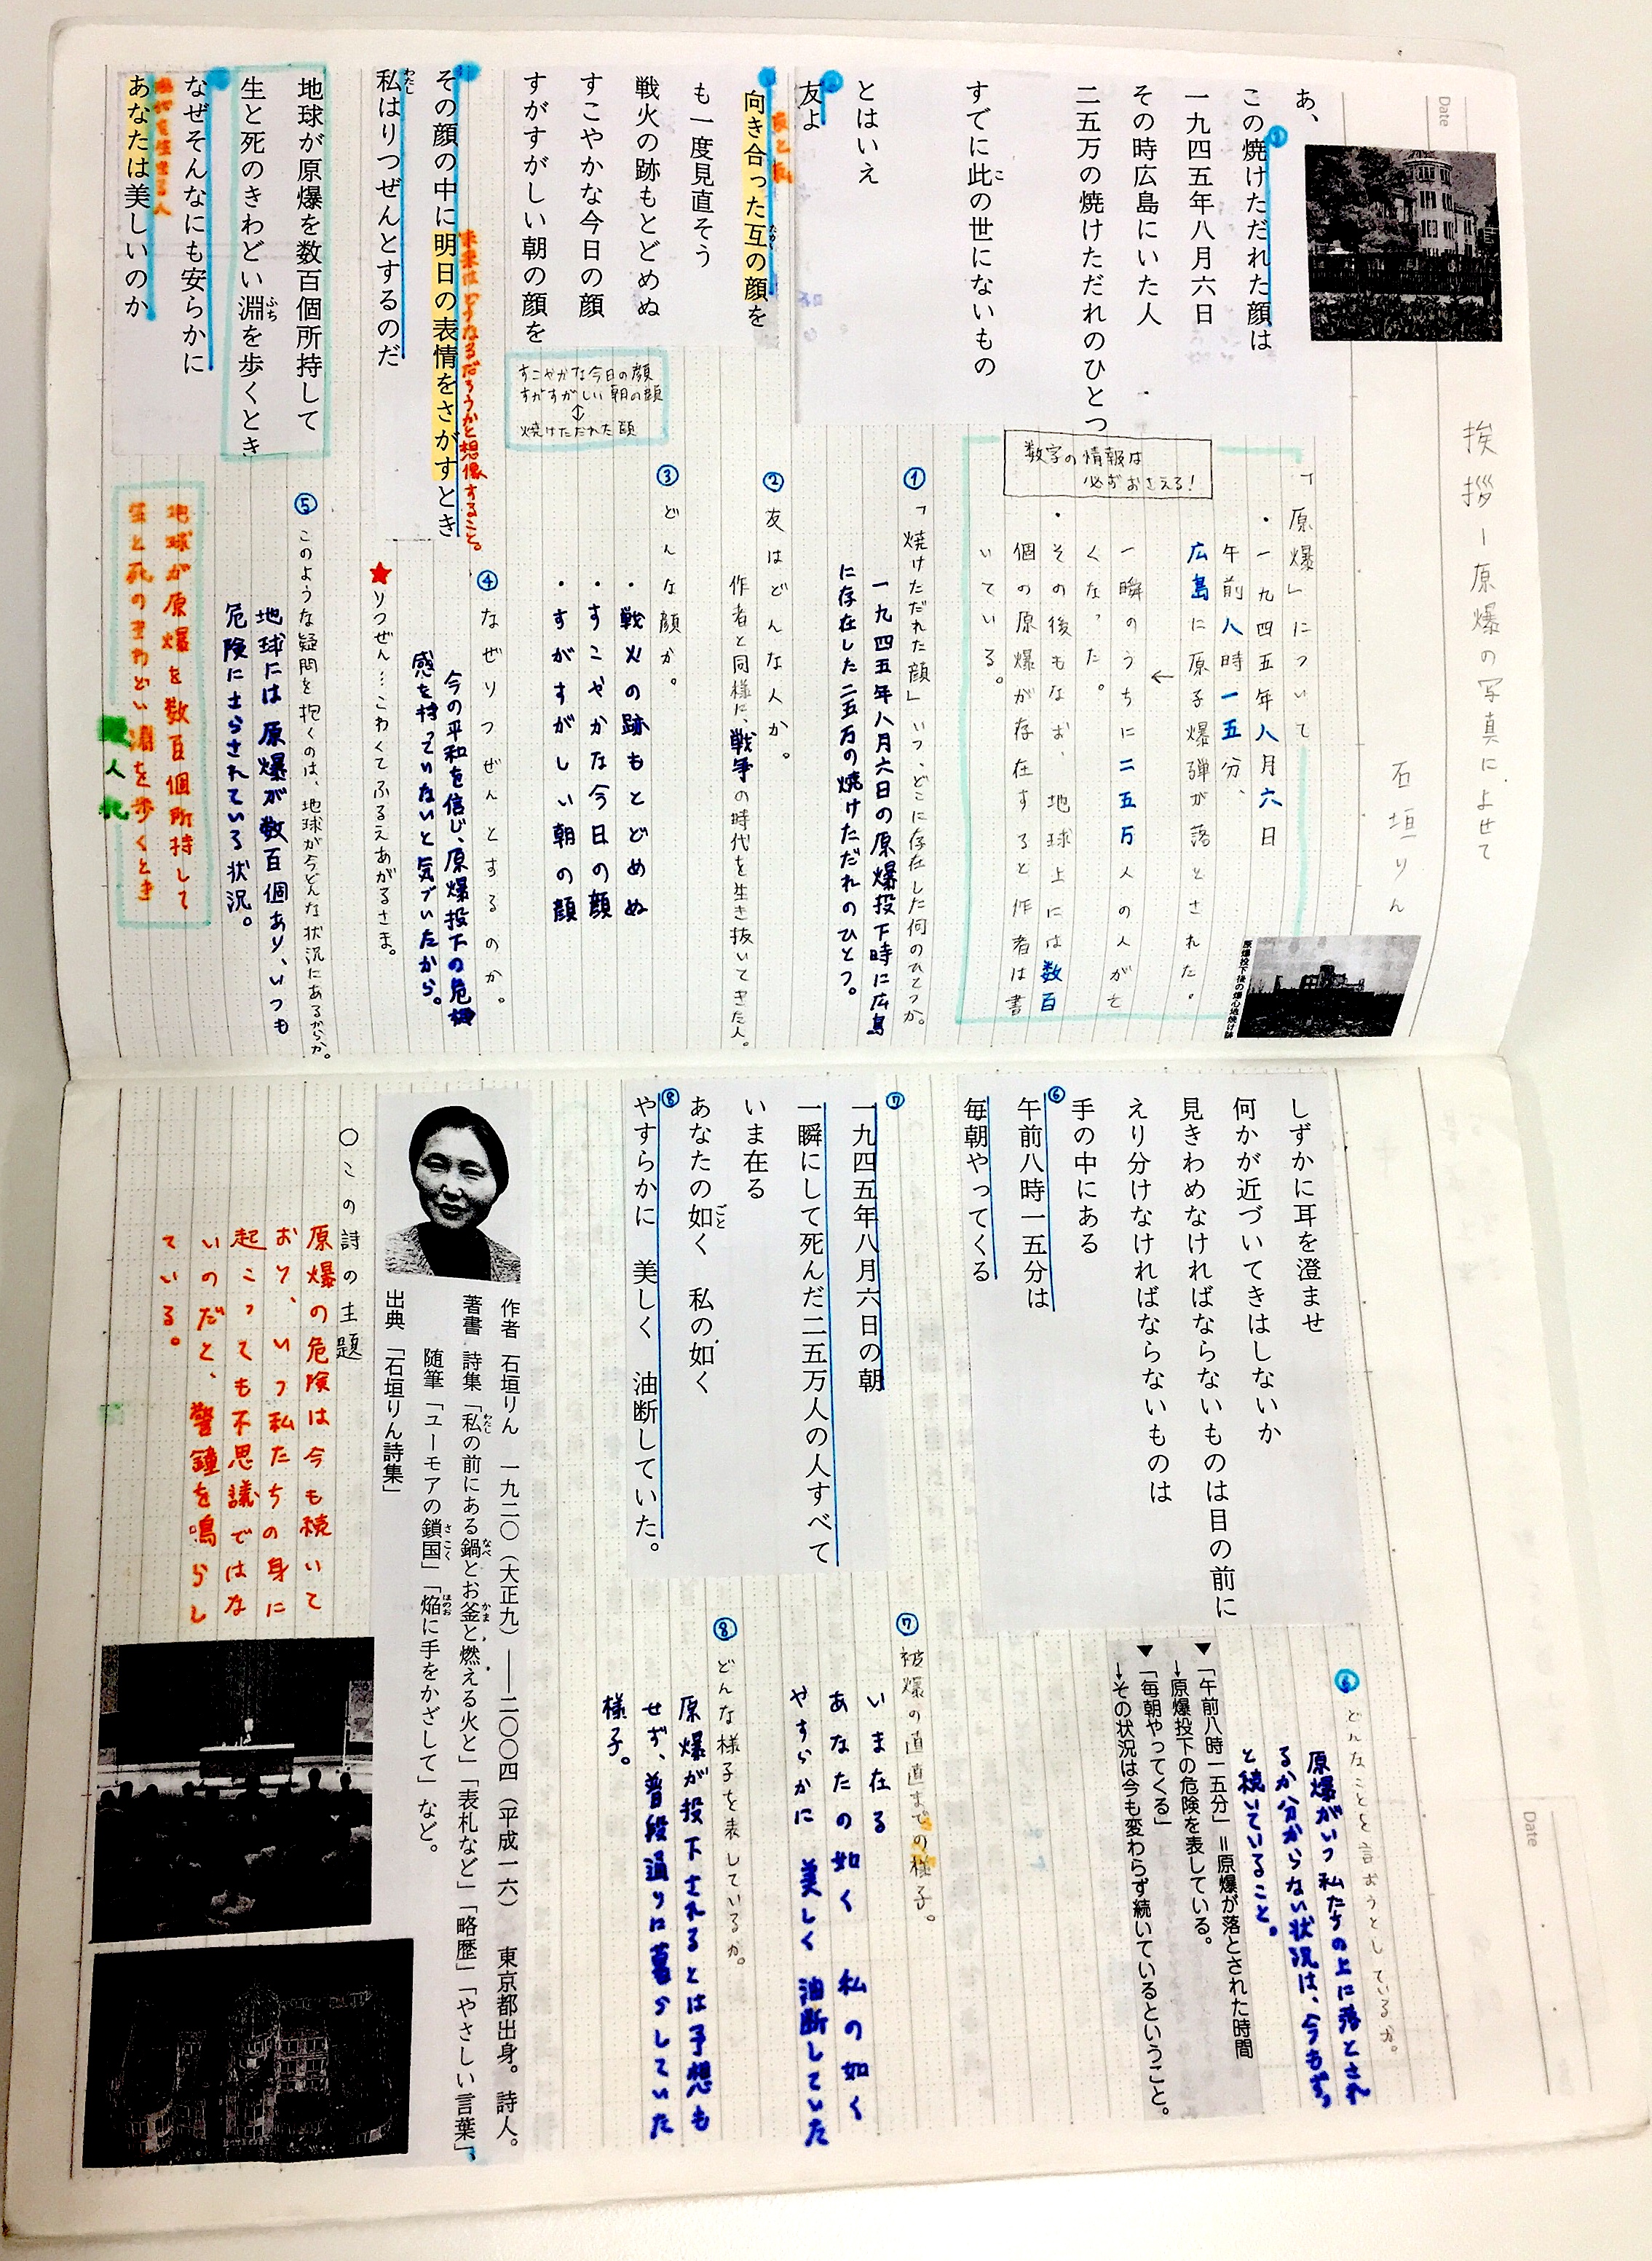 Date
挨拶―原爆の写真によせて
石垣りん
あ、
この焼けただれた顔は
一九四五年八月六日
その時広島にいた人
二五万の焼けただれのひとつ
すでに此の世にないもの
とはいえ
友よ
向き合った互の顔を
も一度見直そう
戦火の跡もとどめぬ
すこやかな今日の顔
すがすがしい朝の顔を
その顔の中に明日の表情をさがすとき
私はりつぜんとするのだ
地球が原爆を数百個所持して
生と死のきわどい淵を歩くとき
なぜそんなにも安らかに
あなたは美しいのか
友と私
未来はどうなるだろうかと想像すること。
すこやかな今日の顔
すがすがしい朝の顔
↕
焼けただれた顔
原爆投下後の爆心地焼け跡
「原爆」について
・一九四五年八月六日
午前八時一五分、
広島に原子爆弾が落とされた。
←
一瞬のうちに二五万人の人が亡
くなった。
・その後もなお、地球上には数百
個の原爆が存在すると作者は書
いている。
数字の情報は
必ずおさえる!
① 「焼けただれた顔」いつ、どこに存在した何のひとつか。
一九四五年八月六日の原爆投下時に広島
に存在した二五万の焼けただれのひとつ。
② 友はどんな人か。
作者と同様に、戦争の時代を生き抜いてきた人。
③ どんな顔か。
・戦火の跡もとどめぬ
・すこやかな今日の顔
・すがすがしい朝の顔
④ なぜりつぜんとするのか。
今の平和を信じ、原爆投下の危機
感を持っていないと気づいたから。
★りつぜん…こわくてふるえあがるさま。
⑤ このような疑問を抱くのは、地球が今どんな状況にあるからか。
地球には原爆が数百個あり、いつも
危険にさらされている状況。
地球が原爆を数百個所持して
生と死のきわどい淵を歩くとき
Date
しずかに耳を澄ませ
何かが近づいてきはしないか
見きわめなければならないものは目の前に
えり分けなければならないものは
手の中にある
⑥
午前八時一五分は
毎朝やってくる
⑦
一九四五年八月六日の朝
一瞬にして死んだ二五万人の人すべて
いま在る
あなたの如く 私の如く
⑧
やすらかに 美しく 油断していた。
⑥ どんなことを言おうとしているか。
原爆がいつ私たちの上に落とされ
るか分からない状況は、今もずっ
と続いていること。
▼「午前八時一五分」=原爆が落とされた時間
→原爆投下の危険を表している。
▼「毎朝やってくる」
→その状況は今も変わらず続いているということ。
⑦ 被爆の直直までの様子。
いま在る
あなたの如く 私の如く
やすらかに 美しく 油断していた
⑧ どんな様子を表しているか。
原爆が投下されるとは予想も
せず、普段通りに暮らしていた
様子。
作者 石垣りん 一九二〇(大正九)――二〇〇四(平成一六) 東京都出身。詩人。
著書 詩集「私の前にある鍋とお釜と燃える火と」「表札など」「略歴」「やさしい言葉」、
随筆「ユーモアの鎖国」「焔に手をかざして」など。
出典 「石垣りん詩集」
○この詩の主題
原爆の危険は今も続いて
おり、いつ私たちの身に
起こっても不思議ではな
いのだと、警鐘を鳴らし
ている。